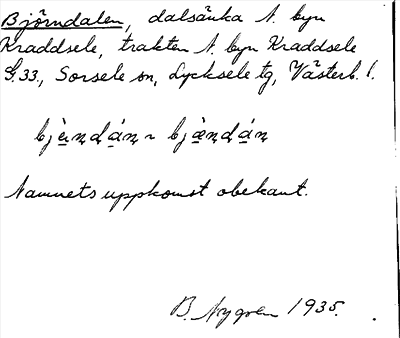 Björndalen, dalsänka N. byn
Kraddsele, trakten N. byn Kraddsele
G. 33, Sorsele sn, Lycksele tg, Västerb. l.
bjæ̀ndáṇ ~ bjæ̀ndáṇ
Namnets uppkomst obekant.
B. Nygren 1935.